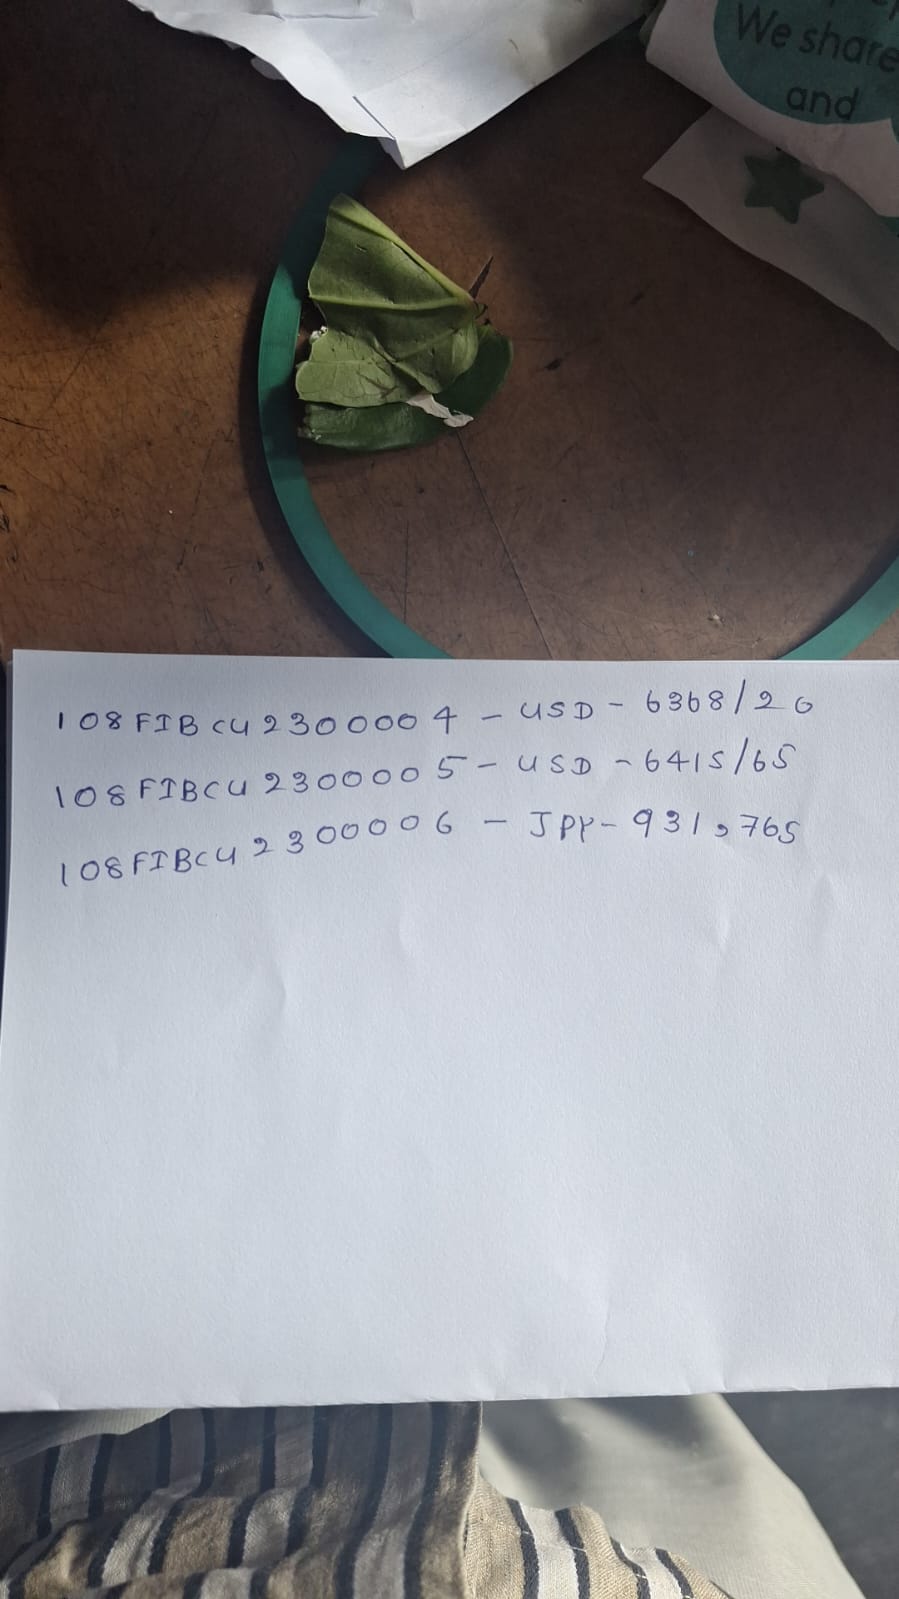 We share
and
108FIBCU2300004 - USD - 6368/20
108FIBCU2300005 - USD - 6415/65
108FIBCU2300006 - JPY - 931,765